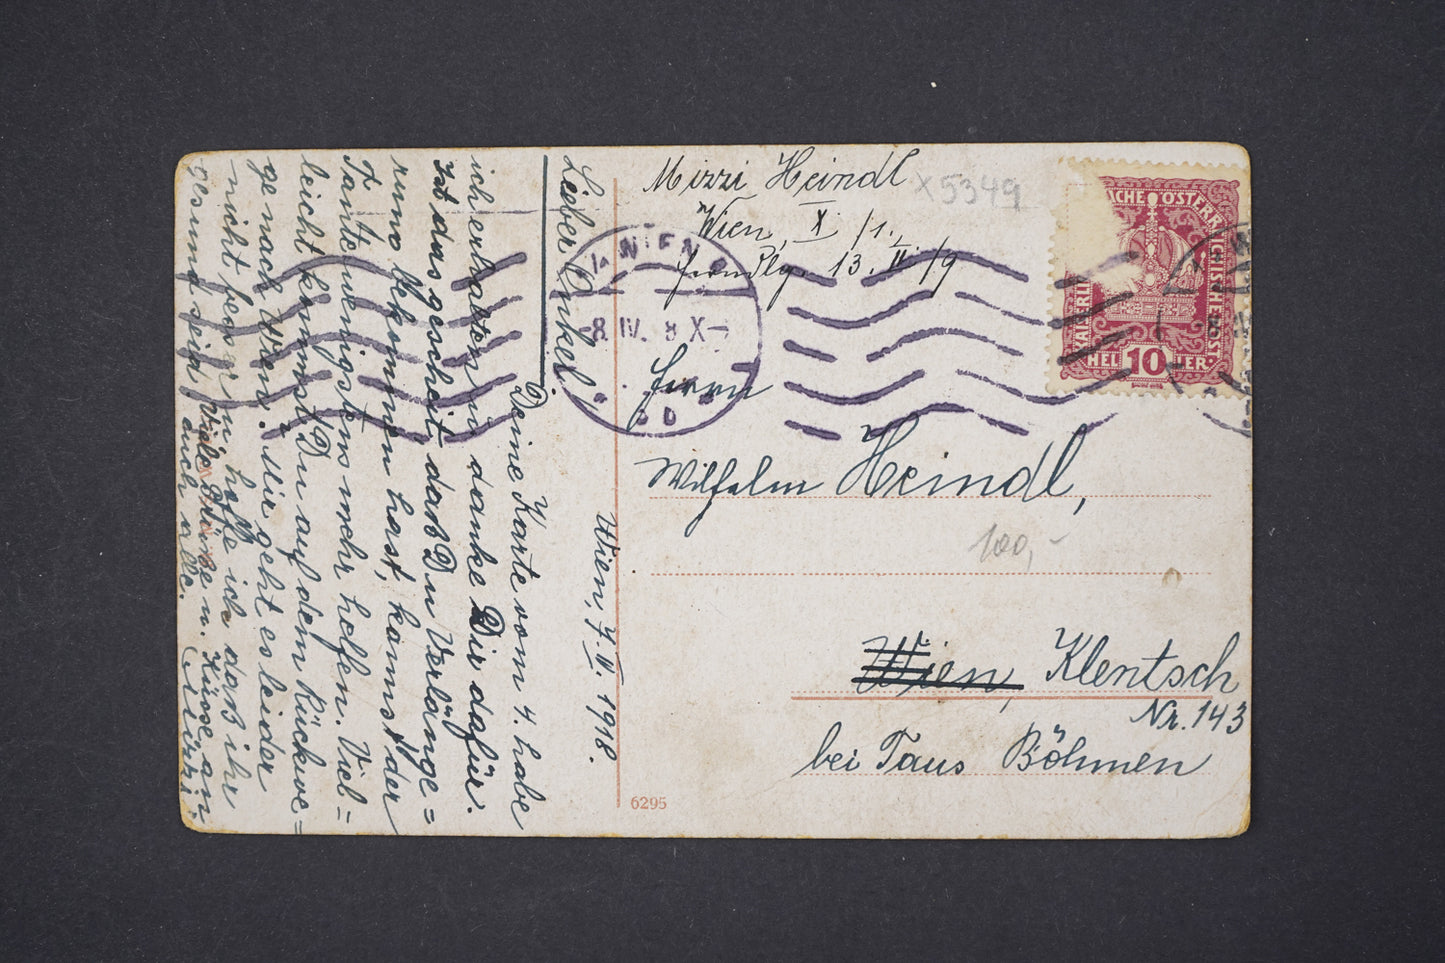 Mizzi Heindl
Wien, X /1.
13. II. /9
X5349
KAISERLICHE ÖSTERREICHISCHE POST
HELLER 10
WIEN
8. IV. 8 X
Herrn
Wilhelm Heindl,
100,-
Wien, Klentsch
Nr. 143
bei Taus Böhmen
6295
Wien, 7. IV. 1918.
Lieber Onkel!
Deine Karte vom 4. habe
ich erhalten u. danke Dir dafür.
Ist das gescheit, daß Du Verlänge=
rung bekommen hast, kannst der
Tante wenigstens mehr helfen. Viel=
leicht kommst Du auf dem Rückwe=
ge nach Wien. Mir geht es leider
nicht besser u. hoffe ich daß ihr
gesund seid. Viele Grüße u. Küsse an
euch alle. Mizzi.